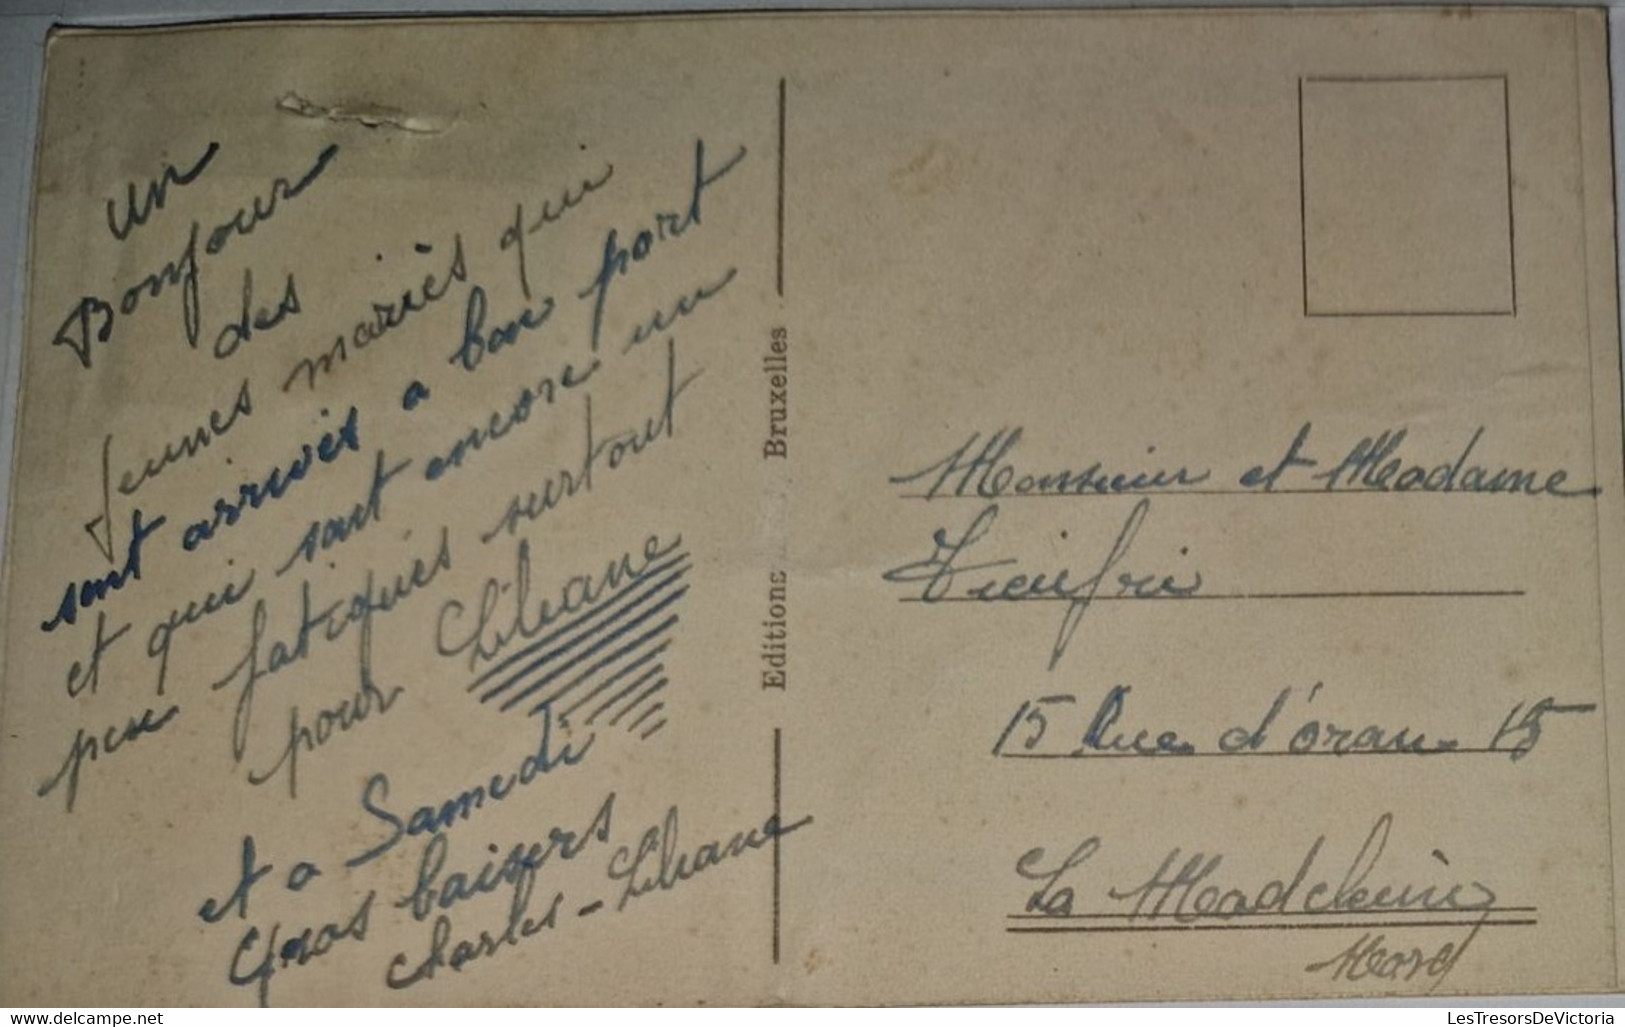 un
Bonjour
des
Jeunes mariès qui
sont arrivés a bon port
et qui sont encore un
peu fatiqués surtout
pour Liliane
et a Samedi
Gros baisers
Charles - Liliane
Editions Bruxelles
Monsieur et Madame
15 Rue d'oran 15
La Madeleine
Nord
LesTresorsDeVictoria
delcampe.net